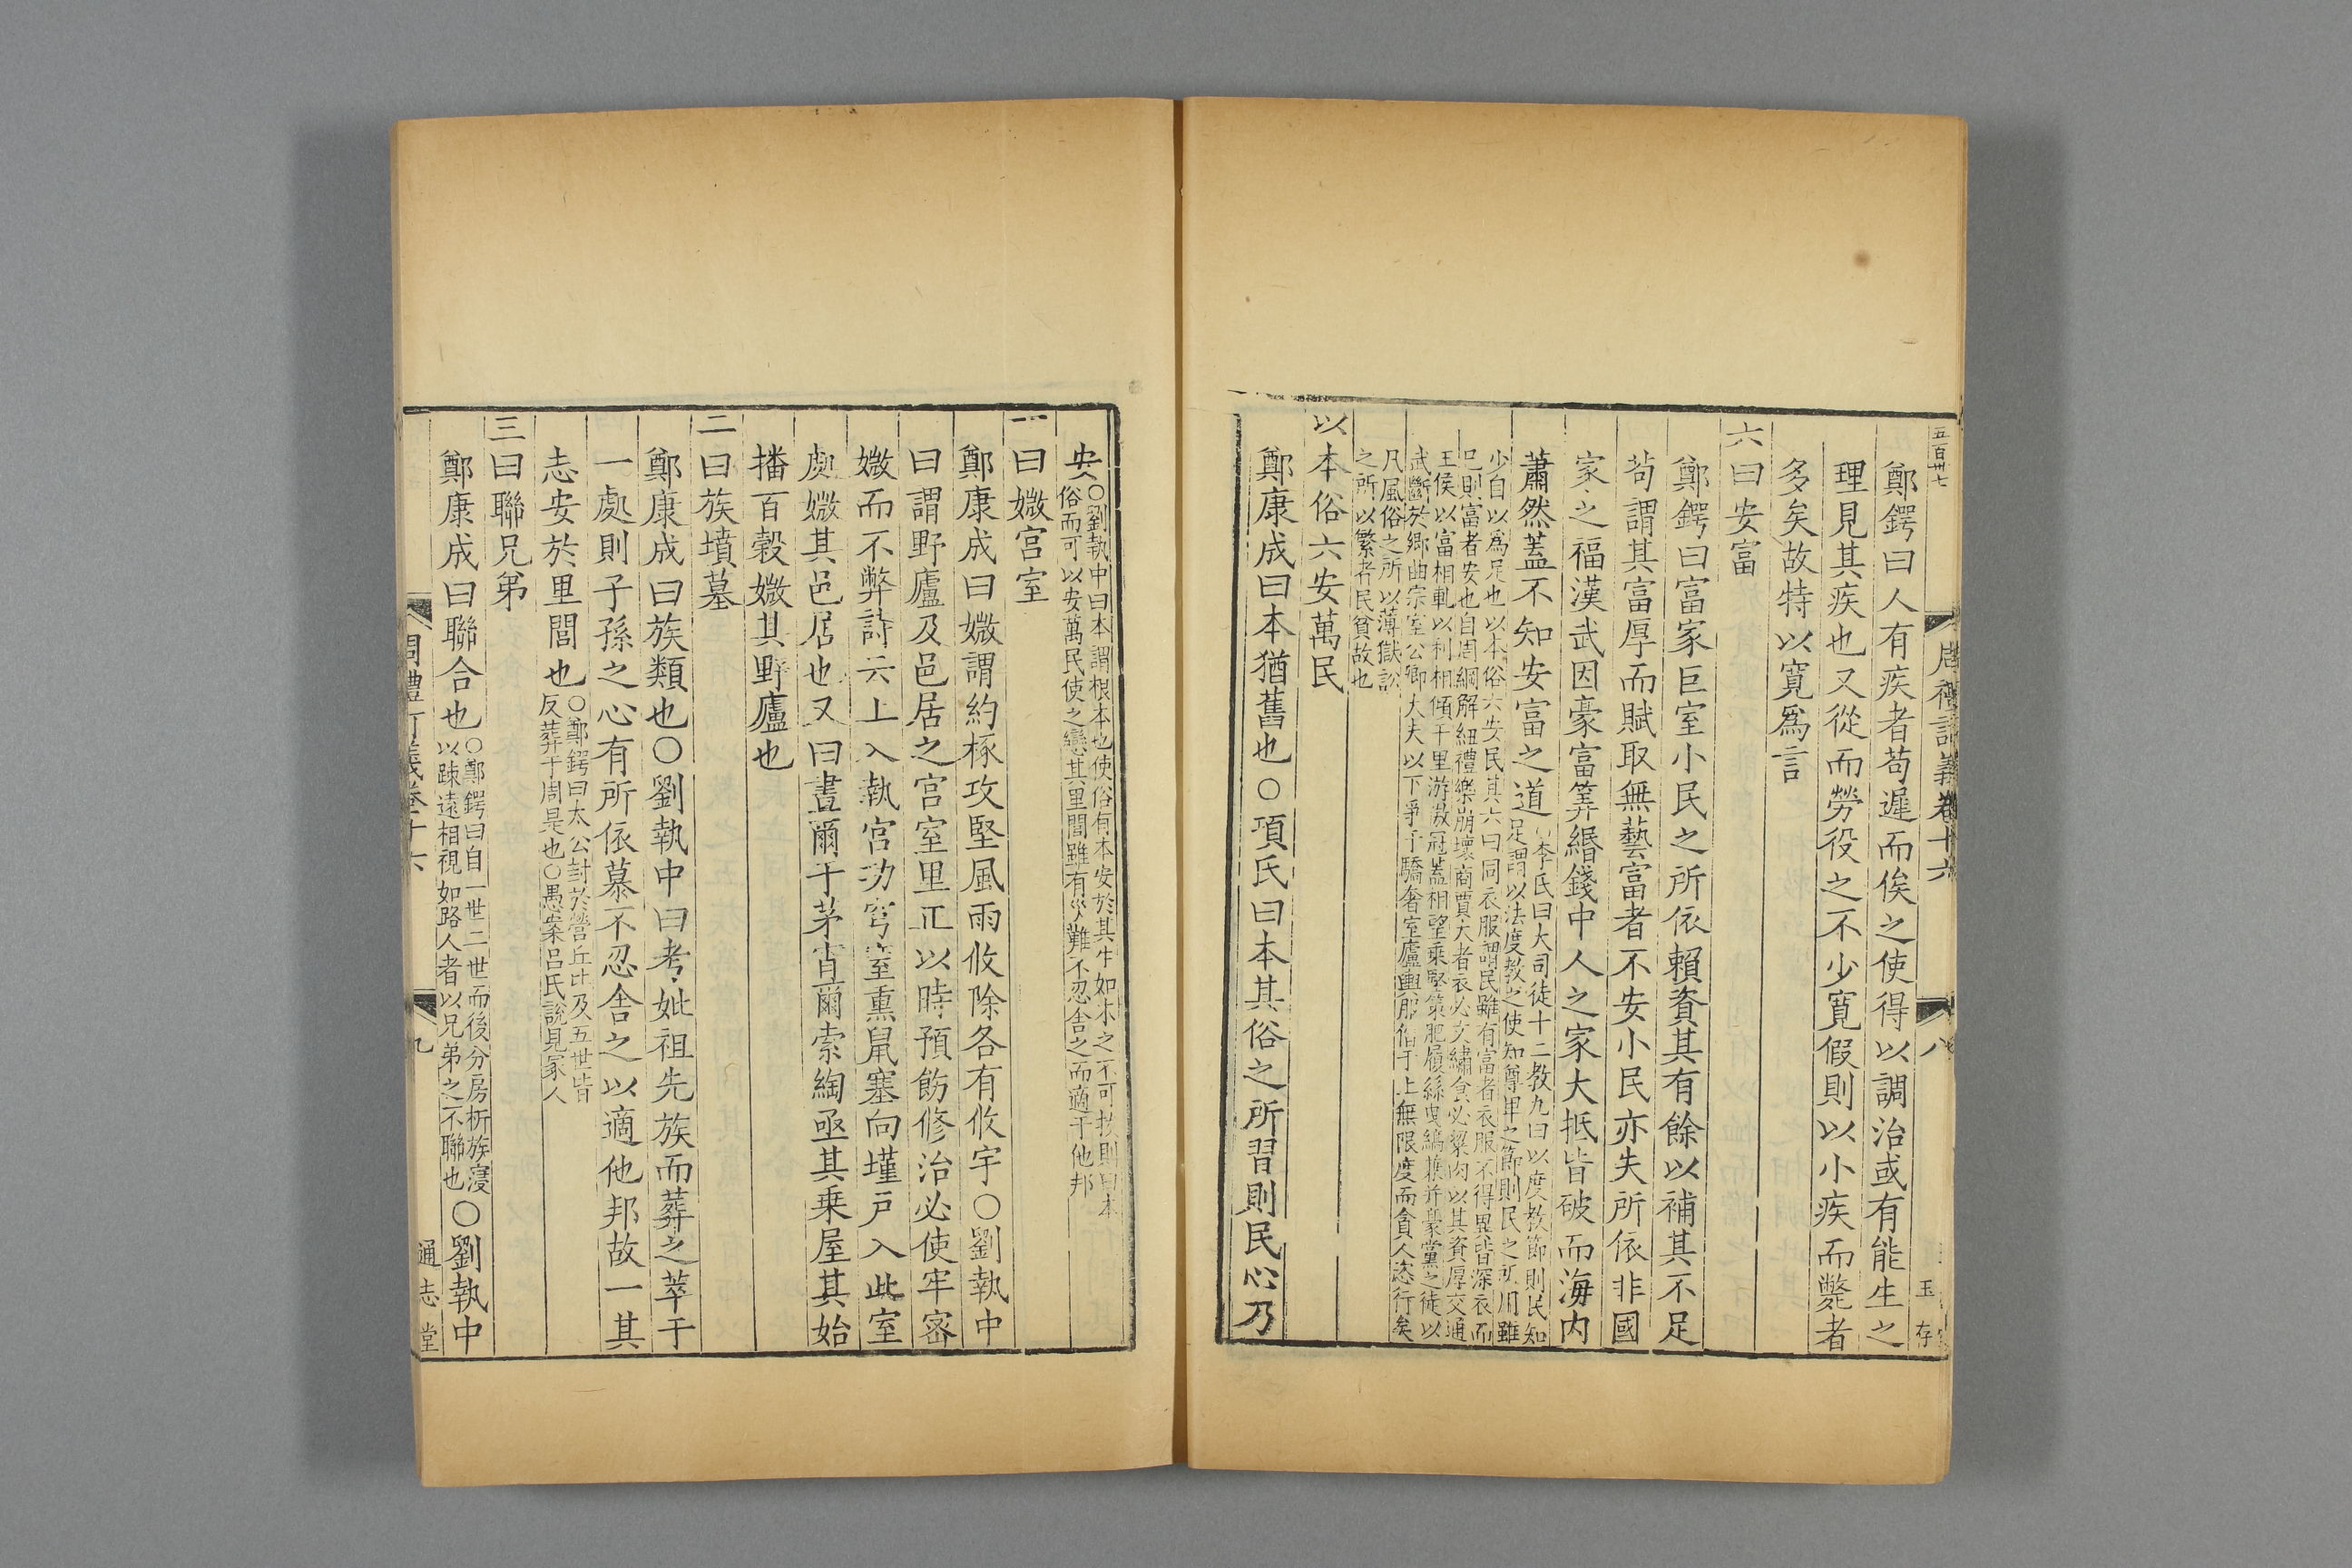 五百卅七
周禮訂義卷十六
八
玉存
鄭鍔曰人有疾者苟遲而俟之使得以調治或有能生之
理見其疾也又從而勞役之不少寛假則以小疾而斃者
多矣故特以寛爲言
六曰安富
鄭鍔曰富家巨室小民之所依賴資其有餘以補其不足
苟謂其富厚而賦取無藝富者不安小民亦失所依非國
家之福漢武因豪富筭緡錢中人之家大抵皆破而海内
蕭然蓋不知安富之道
○李氏曰大司徒十二教九曰以度教節則民知
足謂以法度教之使知尊卑之節則民之所用雖
少自以爲足也以本俗六安民其六曰同衣服謂民雖有富者衣服不得異皆深衣而
已則富者安也自周綱解紐禮樂崩壞商賈大者衣必文繡食必粱肉以其資厚交通
王侯以富相軋以利相傾千里游遨冠蓋相望乘堅策肥履絲曳縞擅并豪黨之徒以
武斷於鄉曲宗室公卿大夫以下爭于驕奢室廬輿服僭于上無限度而貪人恣行矣
凡風俗之所以薄獄訟
之所以繁者民貧故也
以本俗六安萬民
鄭康成曰本猶舊也○項氏曰本其俗之所習則民心乃
安
○劉執中曰本謂根本也使俗有本安於其生如木之不可拔則曰本
俗而可以安萬民使之戀其里閭雖有災難不忍舍之而適于他邦
一曰媺宮室
鄭康成曰媺謂約椓攻堅風雨攸除各有攸宇○劉執中
曰謂野廬及邑居之宮室里正以時預飭修治必使牢宻
媺而不弊詩云上入執宮功穹窒熏鼠塞向墐戸入此室
處媺其邑居也又曰晝爾于茅宵爾索綯亟其乗屋其始
播百穀媺其野廬也
二曰族墳墓
鄭康成曰族類也○劉執中曰考妣祖先族而葬之萃于
一處則子孫之心有所依慕不忍舍之以適他邦故一其
志安於里閭也
○鄭鍔曰太公封於營丘比及五世皆
反葬于周是也○愚案呂氏說見冢人
三曰聯兄弟
鄭康成曰聯合也
○鄭鍔曰自一世二世而後分房析族寖
以踈遠相視如路人者以兄弟之不聯也
○劉執中
周禮訂義卷十六
九
通志堂